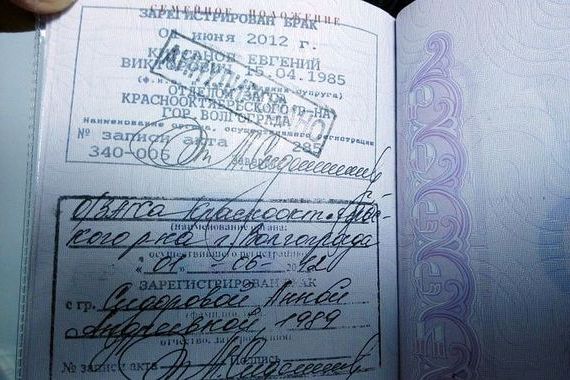 СЕМЕЙНОЕ ПОЛОЖЕНИЕ
ЗАРЕГИСТРИРОВАН БРАК
июня 2012 г.
ЕВГЕНИЙ
ВИКТОРОВИЧ 15.04.1985
супруга)
ОТДЕЛОМ ЗАГСА
КРАСНООКТЯБРЬСКОГО Р-НА
ГОР. ВОЛГОГРАДА
Наименование органа, осуществившего регистрацию
№ записи акта 285
340-006
О/ЗАГСа Краснооктябрьс-
(наименование органа:
кого р-на г. Волгограда
осуществившего регистрацию)
"01" - 06 - 2012
ЗАРЕГИСТРИРОВАН БРАК
с гр. Сидоровой Анной
Андреевной, 1989
отчество, дата рождения)
№ записи акта Подпись